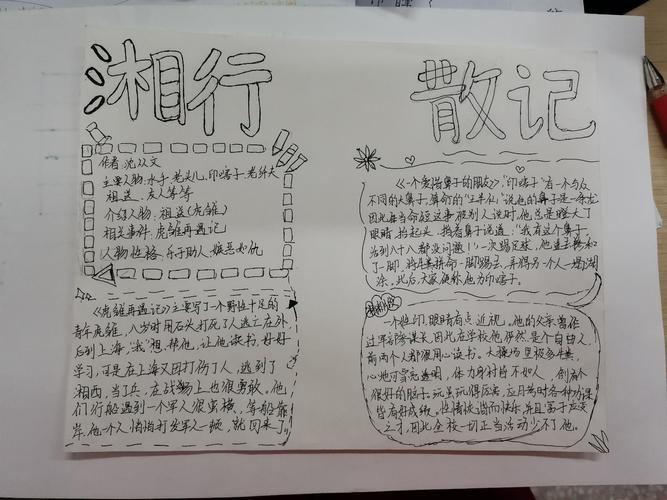 湘行 散记
作者:沈从文
主要人物:水手、老头儿、印瞎子、老伴夫
祖送、友人等等
介绍人物:祖送(虎雏)
相关事件:虎雏再遇记
人物性格:乐于助人、嫉恶如仇
《虎雏再遇记》主要写了一个野性十足的
青年虎雏,八岁时用石头打死了人逃亡在外,
后到上海,“我”想帮他,让他读书,好好
学习,可是在上海又因打伤了人,逃到了
湘西,当了兵,在战场上也很勇敢,他
们行船遇到一个军人很蛮横,等船靠
岸,他一个人悄悄打发军人一顿,就回来了。
《一个爱惜鼻子的朋友》,“印瞎子”有一个与众
不同的大鼻子,算命的“王半仙”说他的鼻子是一条龙
因此每当命运这事被别人说时,他总是瞪大了
眼睛,抬起头,指着鼻子说道:“我有这个鼻子,
活到八十八都没问题!”一次踢足球,他
了一脚,
,此后,大家便称他为印瞎子。
一个姓印,眼睛有点近视。他的父亲曾作
过军部参谋长,因此在学校他俨然是个自由人。
前两个人都很用心读书,
心地可
很好的脑子。玩呈玩得厉害,应月考时各种功课
皆有好成绩。性情快活而快乐,并且富于应变
之才,因此全校一切正当活动少不了他。